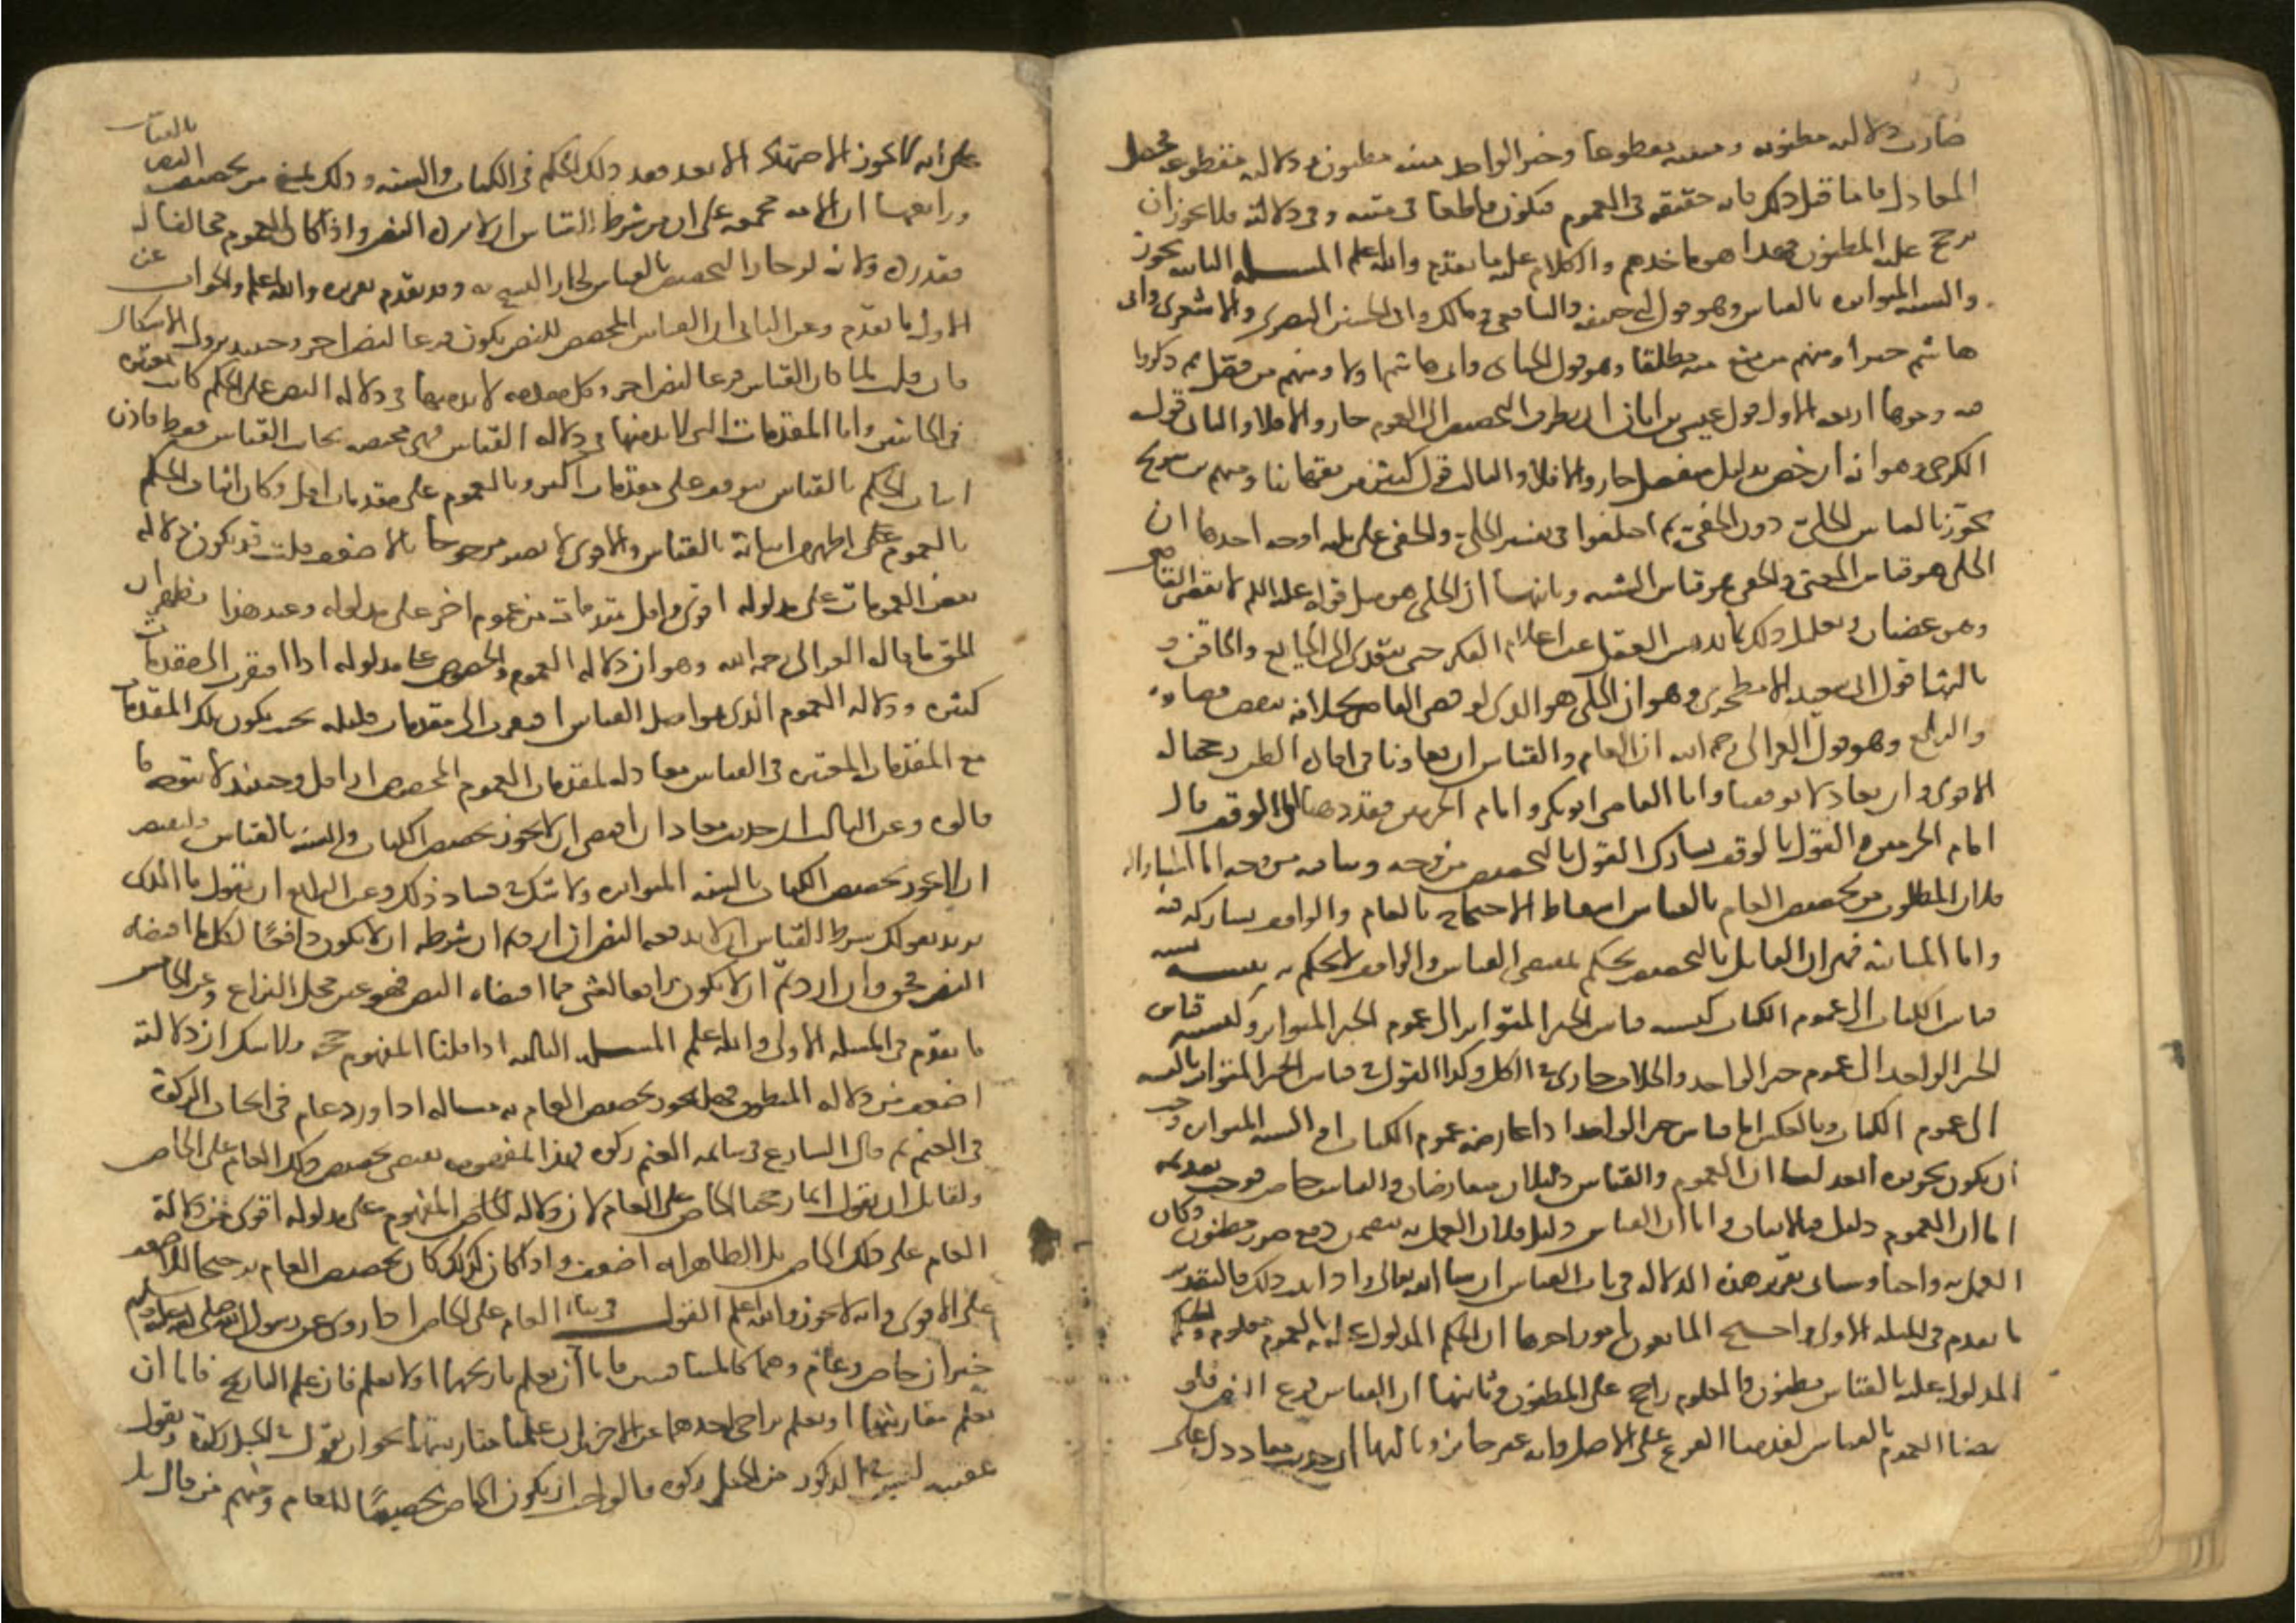 صارت دلالته مظنونه ومتنه مقطوعا وخبر الواحد متنه مظنون ودلالته مقطوعه فحصل
المعادل فاما قبل ذلك فانه حقيقه في العموم فيكون قاطعا في متنه وفي دلالته فلا يجوز ان
يرجح عليه المظنون فهذا هو ماخذهم والكلام عليه ما تقدم والله اعلم المسله الثانيه يجوز
والسنه المتواتره بالقياس وهو قول ابي حنيفه والشافعي ومالك وابي الحسين البصري والاشعري وابي
هاشم خيرا ومنهم من منع منه مطلقا وهو قول الجبائي وابي هاشم اولا ومنهم من فصل ثم ذكروا
فيه وجوها اربعه الاول قول عيسى بن ابان ان تطرق التخصيص الى العموم جاز والا فلا والثاني قول
الكرخي وهو انه ان خص بدليل منفصل جاز والا فلا والثالث قول كثير من فقهائنا ومنهم من يجوزه
يجوز بالقياس الجلي دون الخفي ثم اختلفوا في تفسير الجلي والخفي على ثلثه اوجه احدها ان
الجلي هو قياس المعنى والخفي هو قياس الشبه وثانيها ان الجلي هو مثل قوله عليه السلم لا يقضي القاضي
وهو غضبان وتعليل ذلك بما يدهش العقل عن اتمام الفكر حتى يتعدى الى الجايع والحاقن و
ثالثها قول ابي سعيد الاصطخري وهو ان الجلي هو الذي لو قضى القاضي بخلافه نقض قضاوه
والرابع وهو قول الغزالي رحمه الله ان العام والقياس ان تفاوتا في افاده الظن رجحنا
الاقوى وان تعادلا توقفنا واما القاضي ابو بكر وامام الحرمين فقد ذهبا الى الوقف قال
امام الحرمين والقول بالوقف يشارك القول بالتخصيص من وجه ويباينه من وجه اما المشاركه
فلان المطلوب من تخصيص العام بالقياس اسقاط الاحتجاج بالعام والواقف يشاركه فيه
واما المباينه فهي ان القائل بالتخصيص يحكم بمقتضى القياس والواقف لا يحكم به تنبيه نسبه
قياس الكتاب الى عموم الكتاب كنسبه قياس الخبر المتواتر الى عموم الخبر المتواتر وكنسبه قياس
الخبر الواحد الى عموم خبر الواحد والخلاف جاري في الكل وكذا القول في قياس الخبر المتواتر بالنسبه
الى عموم الكتاب وبالعكس اما قياس خبر الواحد اذا عارضه عموم الكتاب او السنه المتواتره وجب
ان يكون تجويزه ابعد لنا ان العموم والقياس دليلان متعارضان والقياس خاص فوجب تقديمه
اما ان العموم دليل فبالاتفاق واما ان القياس دليل فلان العمل به يتضمن دفع ضرر مظنون وكان
العمل به واجبا وسياتي تقرير هذه الدلاله في باب القياس ان شا الله تعالى واذا ثبت ذلك فالتقدير
ما تقدم في المسله الاولى واحتج المانعون بامور احدها ان الحكم المدلول عليه بالعموم معلوم والحكم
المدلول عليه بالقياس مظنون والمعلوم راجح على المظنون وثانيها ان القياس فرع النص فلو
خصصنا العموم بالقياس لقدمنا الفرع على الاصل وانه غير جائز وثالثها ان حديث معاذ دل على
على انه لا يجوز الاجتهاد الا بعد فقد ذلك الحكم في الكتاب والسنه وذلك يمنع من تخصيص النص بالقياس
ورابعها ان الامه مجمعه على ان من شرط القياس ان لا يرده النص واذا كان العموم مخالفا له
فقد رده ولانه لو جاز التخصيص بالقياس لجاز النسخ به وقد تقدم تقريره والله اعلم والجواب عن
الاول ما تقدم وعن الثاني ان القياس المخصص للنص يكون فرعا لنص اخر وحينئذ يزول الاشكال
فان قلت لما كان القياس فرعا لنص اخر وكل مقدمه لا بد منها في دلاله النص على الحكم كانت معتبره
في الجانبين واما المقدمات التي لا بد منها في دلاله القياس فهي مختصه بجانب القياس فقط فاذن
اثبات الحكم بالقياس يتوقف على مقدمات اكثر وبالعموم على مقدمات اقل وكان اثبات الحكم
بالعموم اظهر من اثباته بالقياس والاقوى لا يصير مرجوحا بالاضعف قلت قد يكون دلاله
بعض العمومات على مدلوله اقوى واقل مقدمات من عموم اخر على مدلوله وعند هذا يظهر ان
الحق ما قاله الغزالي رحمه الله وهو ان دلاله العموم المخصوص على مدلوله اذا افتقر الى مقدمات
كثيره ودلاله العموم الذي هو اصل القياس افتقرت الى مقدمات قليله بحيث يكون تلك المقدمات
مع المقدمات المعتبره في القياس معادله لمقدمات العموم المخصوص او اقل وحينئذ لا يتوجه ما
قالوه وعن الثالث ان حديث معاذ ان اقتضى ان لا يجوز تخصيص الكتاب والسنه بالقياس فليقتض
ان لا يجوز تخصيص الكتاب بالسنه المتواتره ولا شك في فساد ذلك وعن الرابع ان نقول ما الذي
تريد بقولك شرط القياس ان لا يدفعه النص ان اردتم ان شرطه ان لا يكون دافعا لكل ما اقتضاه
النص فحق وان اردتم ان لا يكون رافعا لشي مما اقتضاه النص فهو عين محل النزاع وعن الخامس
ما تقدم في المسله الاولى والله اعلم المسله الثالثه اذا قلنا المفهوم حجه فلا شك ان دلالته
اضعف من دلاله المنطوق فهل يجوز تخصيص العام به مثاله اذا ورد عام في ايجاب الزكوة
في الغنم ثم قال الشارع في سائمه الغنم زكوه فهذا المفهوم يقتضي تخصيص ذلك العام على الخاص
ولقائل ان يقول انما رجحنا الخاص على العام لان دلاله الخاص المفهوم على مدلوله اقوى من دلاله
العام على ذلك الخاص بل الظاهر انه اضعف واذا كان كذلك كان تخصيص العام ترجيحا للاضعف
على الاقوى وانه لا يجوز والله اعلم القول في بناء العام على الخاص اذا روي عن رسول الله صلى الله عليه وسلم
خبران خاص وعام وهما كالمتنافيين فاما ان يعلم تاريخهما او لا يعلم فان علم التاريخ فاما ان
يعلم مقارنتهما او يعلم تراخي احدهما عن الاخر فان علمنا مقارنتهما نحو ان يقول في الخيل زكوة ويقول
عقيبه ليس في الذكور من الخيل زكوه فالواجب ان يكون الخاص تخصيصا للعام ومنهم من قال بل